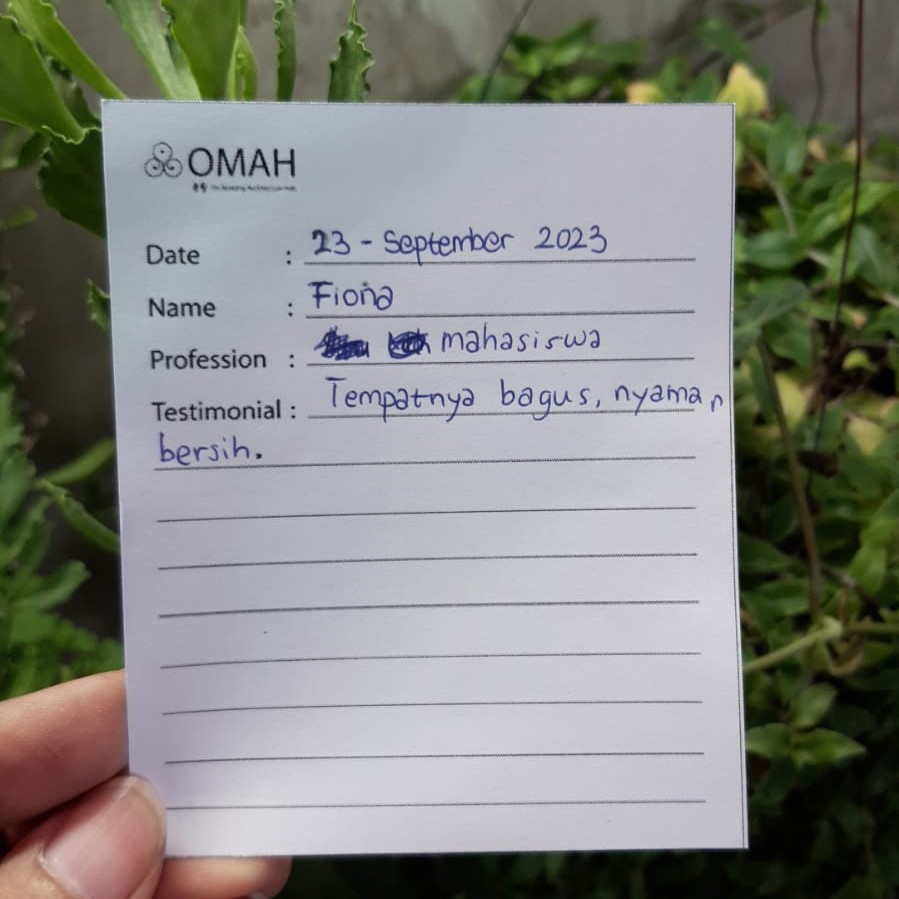 OMAH
Date : 23 - September 2023
Name : Fiona
Profession : mahasiswa
Testimonial : Tempatnya bagus, nyaman
bersih.